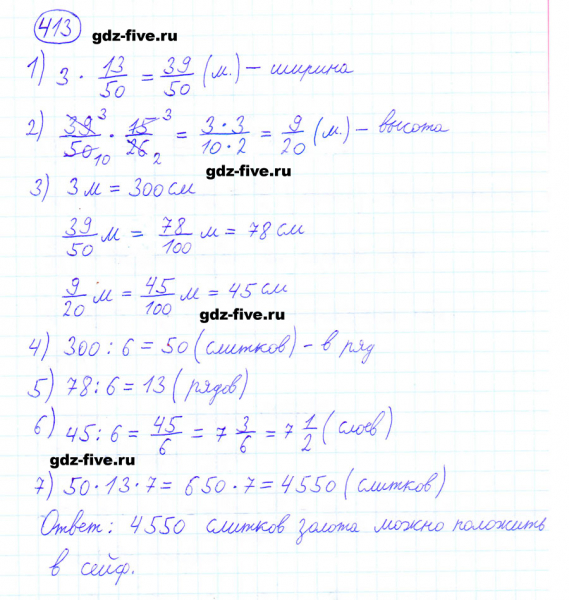 413
gdz-five.ru
1) 3 · 13/50 = 39/50 (м.) – ширина
2) 39³/50₁₀ · 15³/26₂ = 3·3/10·2 = 9/20 (м.) – высота
gdz-five.ru
3) 3 м = 300 см
39/50 м = 78/100 м = 78 см
9/20 м = 45/100 м = 45 см
gdz-five.ru
4) 300 : 6 = 50 (слитков) – в ряд
5) 78 : 6 = 13 (рядов)
6) 45 : 6 = 45/6 = 7 3/6 = 7 1/2 (слоев)
gdz-five.ru
7) 50 · 13 · 7 = 650 · 7 = 4550 (слитков)
Ответ: 4550 слитков золота можно положить
в сейф.